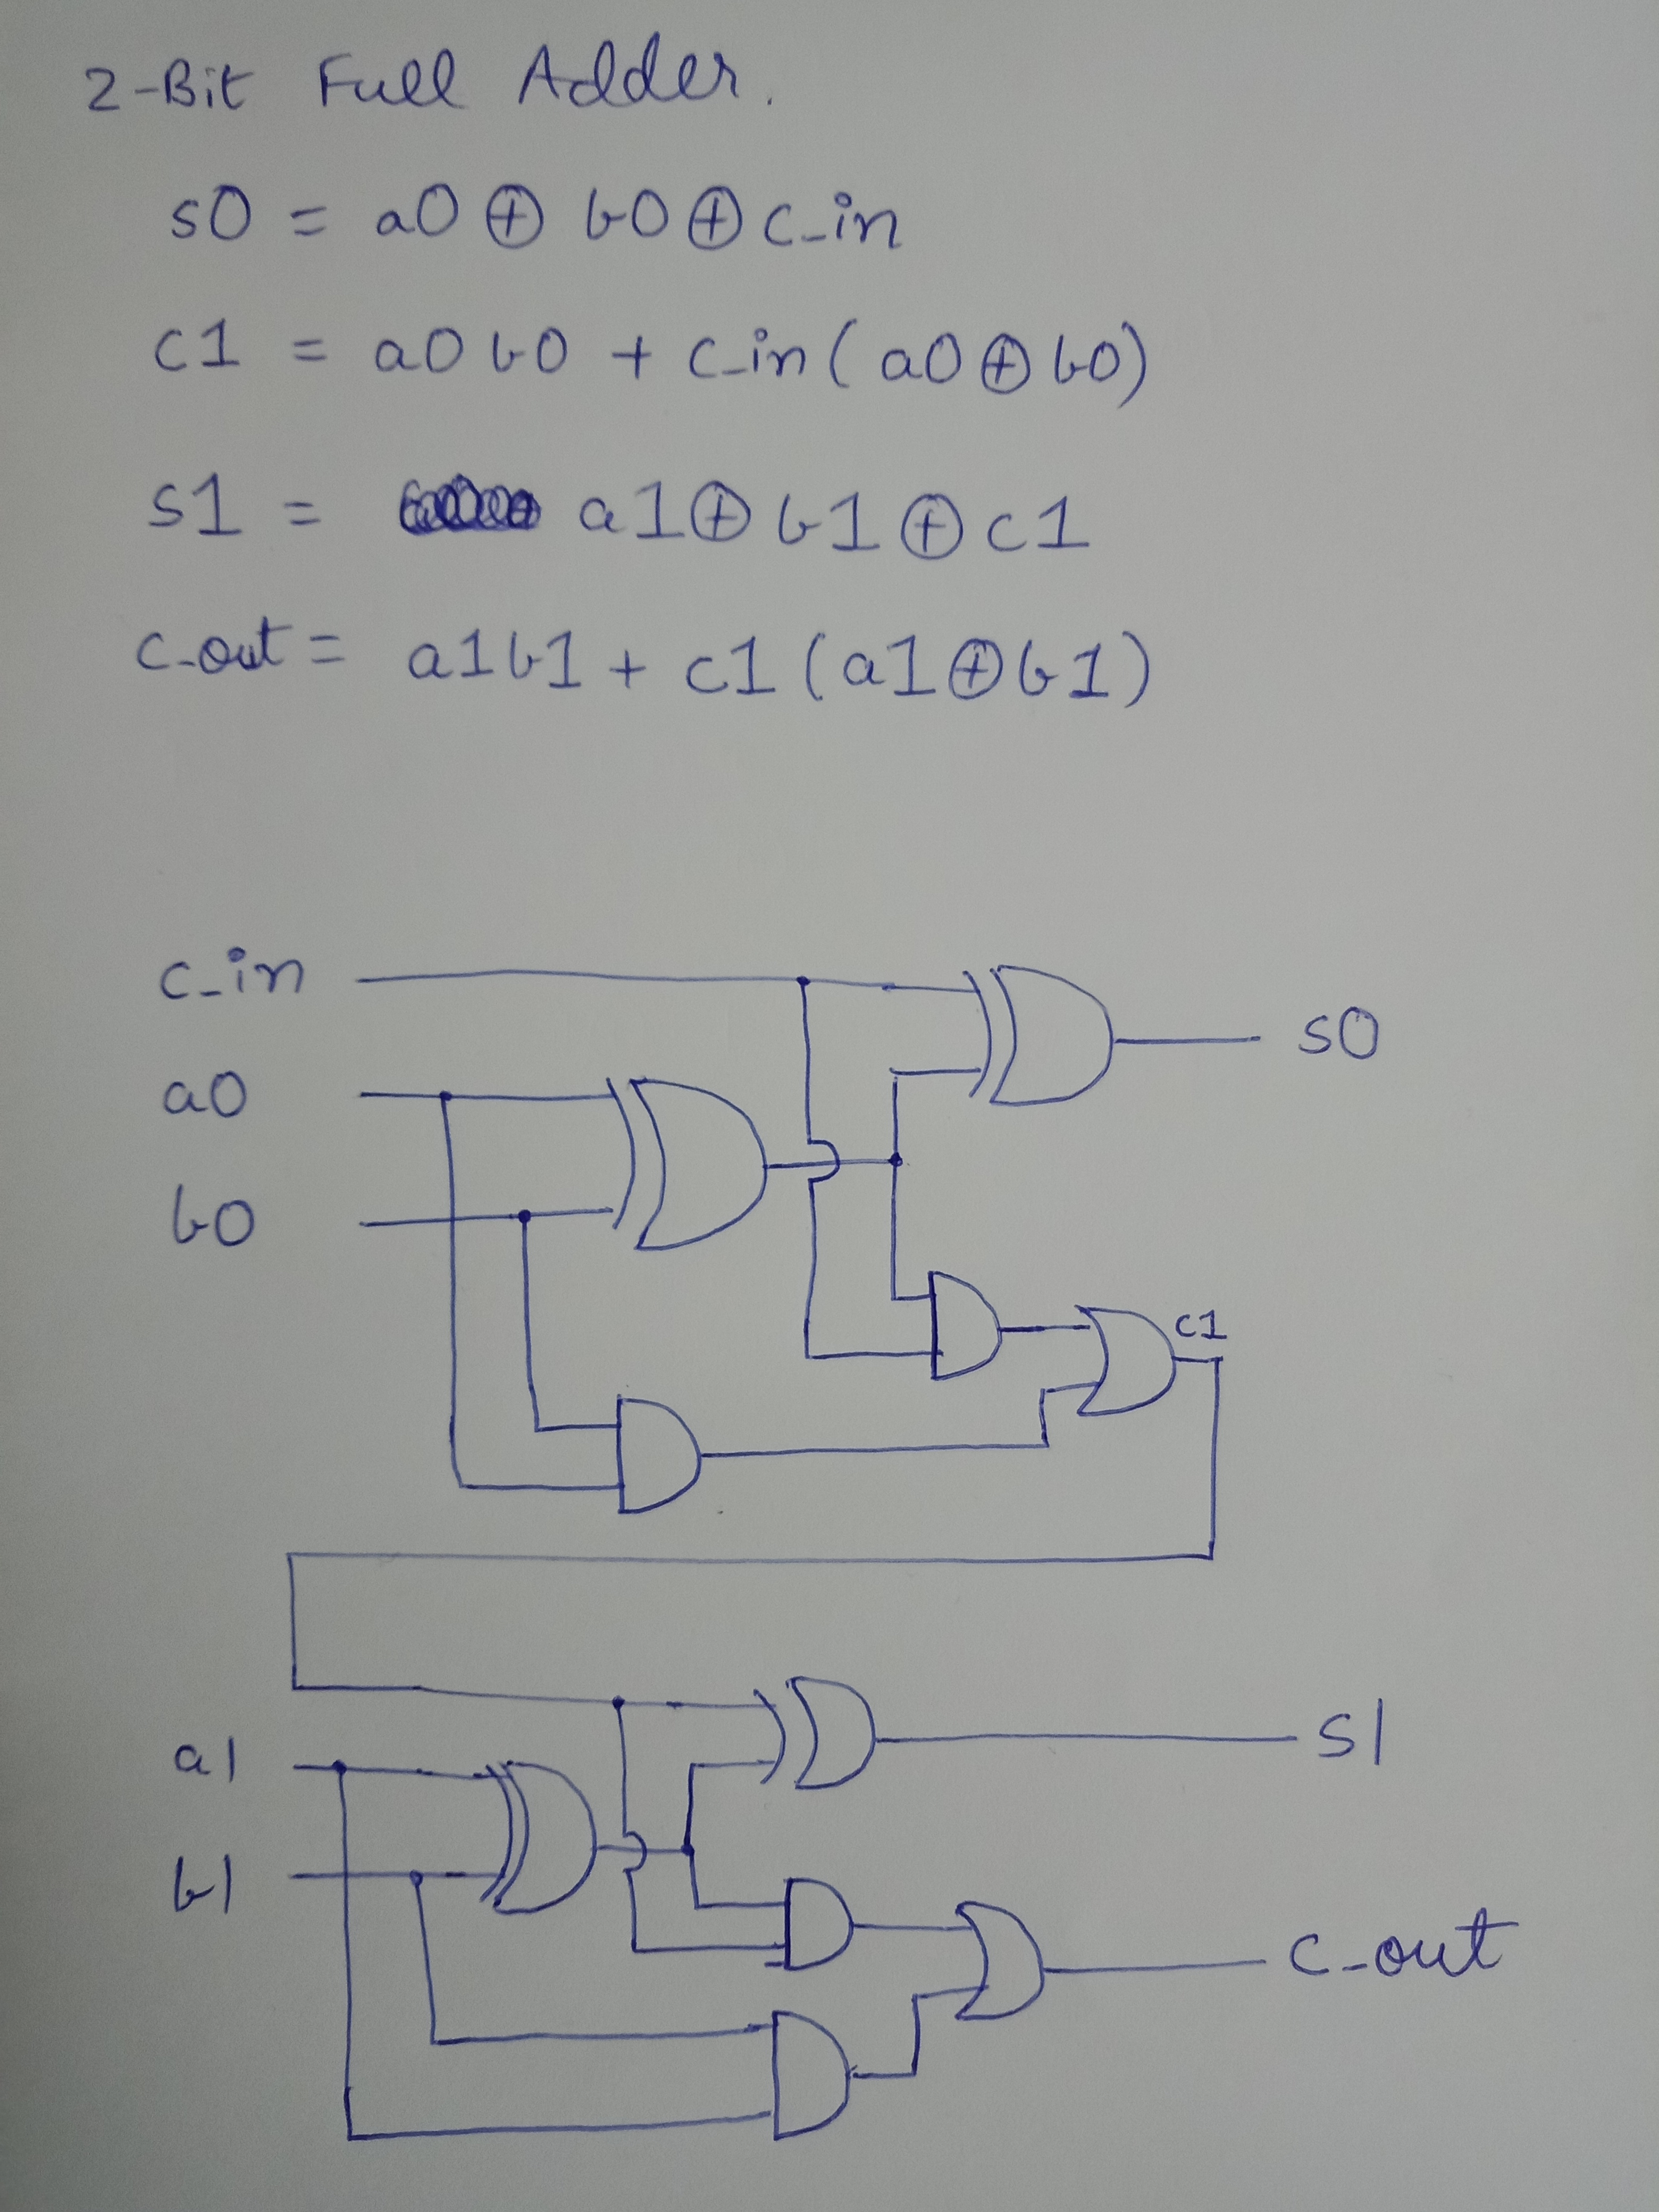 2-Bit Full Adder.
s0 = a0 ⊕ b0 ⊕ c_in
c1 = a0 b0 + c_in ( a0 ⊕ b0)
s1 = a1 ⊕ b1 ⊕ c1
c_out = a1b1 + c1 (a1 ⊕ b1)
c_in
s0
a0
b0
c1
s1
a1
b1
c_out